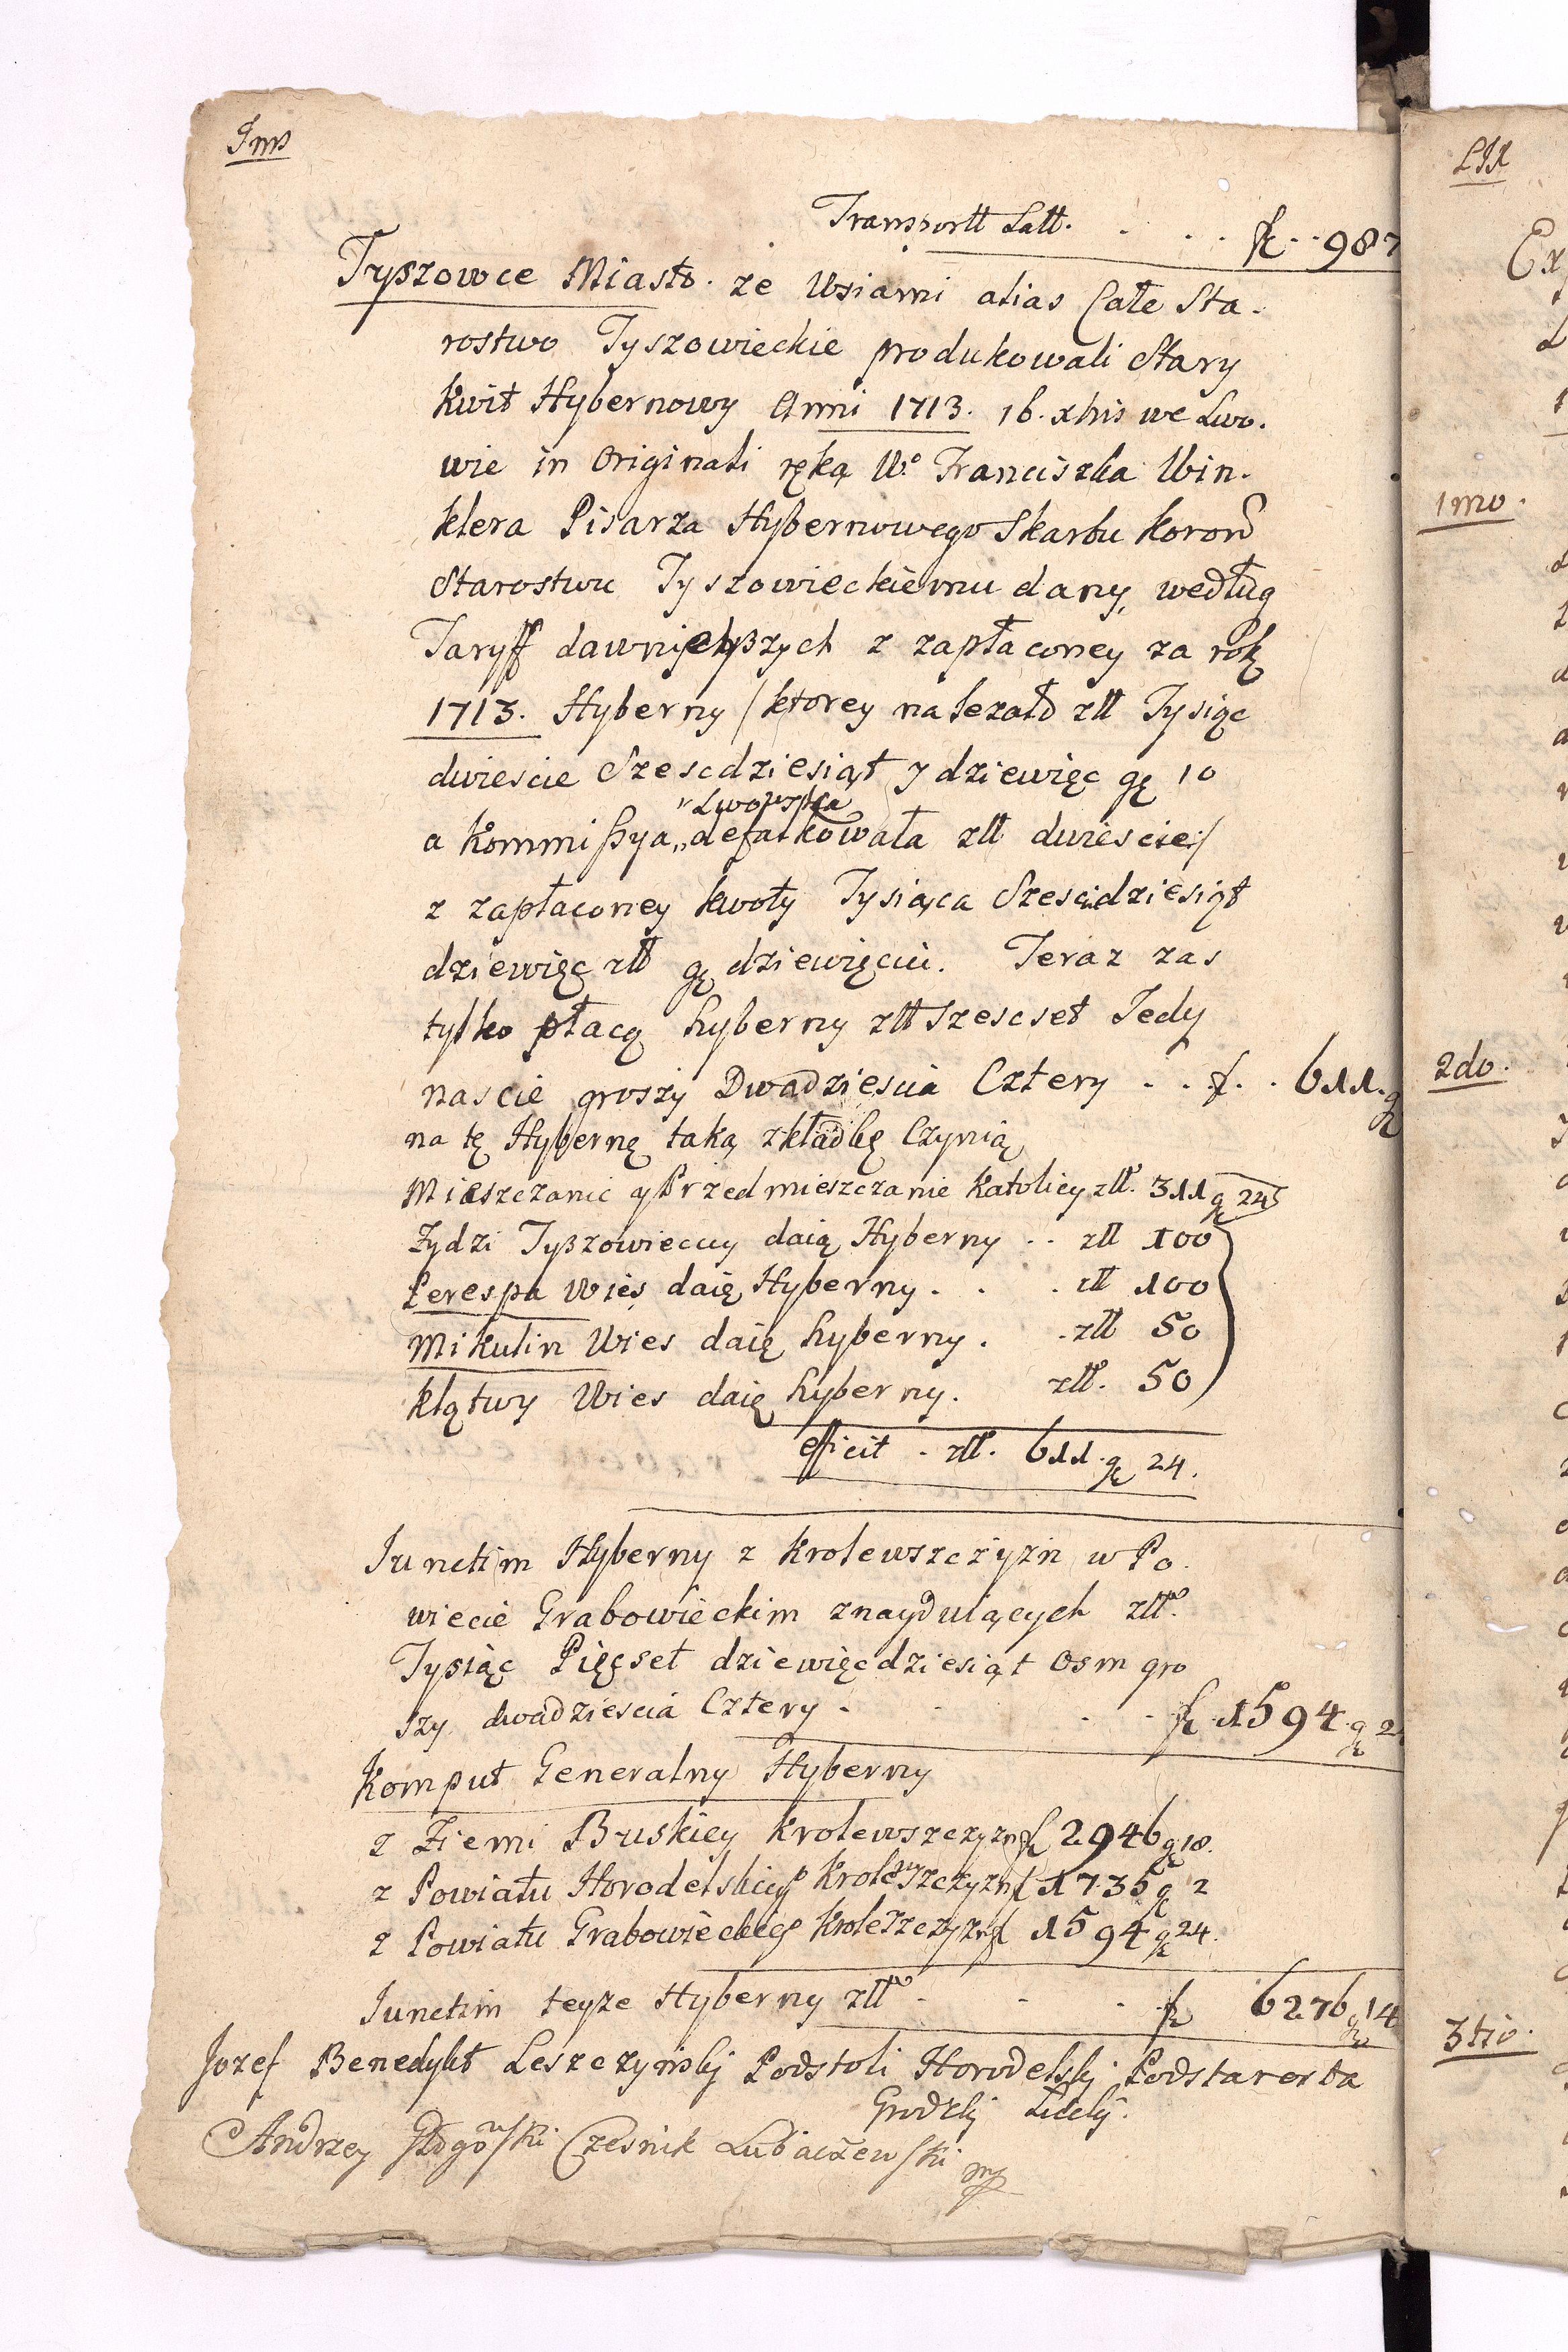 Transportt Latt. . . . fl . . 987
Tyszowce Miasto. ze Wsiami alias Całe Sta-
rostwo Tyszowieckie produkowali Stary
Kwit Hybernowy Anni 1713. 16. xbris we Lwo-
wie in Originali ręką W.º Franciszka Win-
klera Pisarza Hybernowego Skarbu Koron
Starostwu Tyszowieckiemu dany, według
Taryff dawnieyszych z zapłaconey za rok
1713. Hyberny / ktorey należało zll Tysiąc
dwiescie Szescdziesiąt y dziewięc gr 10
a Kommissya „ Lwowska „ defalkowała zll dwiescie /
z zapłaconey kwoty Tysiąca Szescdziesiąt
dziewięc zll gr dziewięciu. Teraz zas
tylko płacą hyberny zll szescset Jedy
nascie groszy Dwadziescia Cztery . . f. . 611. gr
na tę Hybernę taką zkładkę Czynią
Mieszczanie y Przedmieszczanie Katolicy zll. 311 gr 24
Zydzi Tyszowieccy daią Hyberny . . zll 100
Perespa Wies daię Hyberny . . . zll 100
Mikulin Wies daię hyberny . . zll 50
Klątwy Wies daię hyberny. zll. 50
efficit . zll. 611. gr 24.
Junctim Hyberny z Krolewszczyzn w Po-
wiecie Grabowieckim znayduiących zll.
Tysiąc Pięcset dziewięcdziesiąt Osm gro
szy dwadziescia Cztery . . . . fl 1594. gr 2
Komput Generalny Hyberny
z Ziemi Buskiey Krolewszczyzn fl 2946 gr 18.
z Powiatu Horodelskieg° Krolewszczyzn fl 1735 gr 2
z Powiatu Grabowieckieg° Kroleszczyzn fl 1594 gr 24.
Junctim teyze Hyberny zll . . . fl 6276 gr 14
Jozef Benedykt Leszczynskj Podstoli Horodelskj Podstarosta
Grodzkj
Andrzey Głogowski Czesnik Lubaczewski mp
1mo.
2do.
3tio.